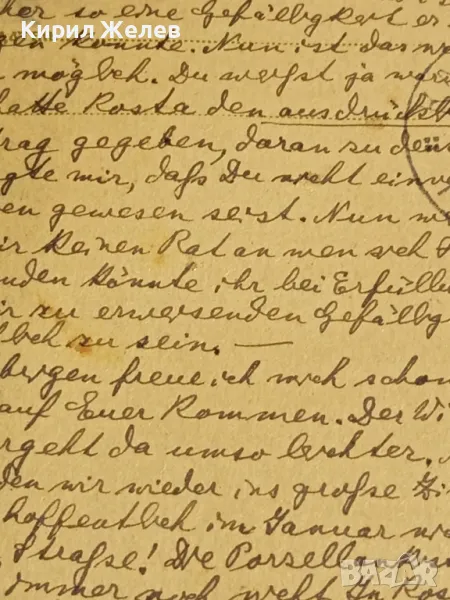 Кирил Желев
her so eine Gefälligkeit er
gen könnte. Nun ist das
möglich. Du weisst ja war
hatte Rosta den ausdrückl
trag gegeben, daran zu den
gte mir, dass Du nicht einve
en gewesen seist. Nun we
ir keinen Rat an wen sich
nden könnte ihr bei Erfüllu
ir zu erweisenden Gefällig
lich zu sein. —
brigen freue ich mich schon
auf Euer Kommen. Der Wi
rgeht da umso leichter.
den wir wieder ins grosse Zi
hoffentlich im Januar
Strasse! Die Porzella
immer noch
bazar